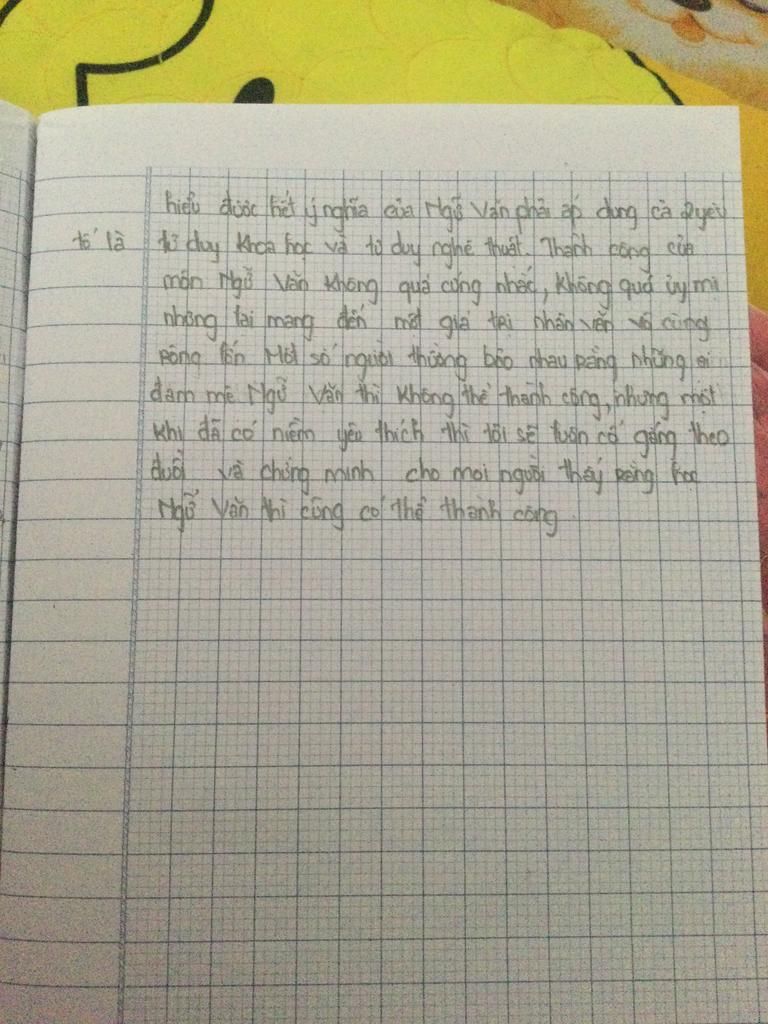 hiểu được hết ý nghĩa của Ngữ Văn phải áp dụng cả 2 yếu
tố là tư duy khoa học và tư duy nghệ thuật. Thành công của
môn Ngữ Văn không quá cứng nhắc, không quá ủy mị
nhưng lại mang đến một giá trị nhân văn vô cùng
rộng lớn Một số người thường bảo nhau rằng những ai
đam mê Ngữ Văn thì không thể thành công, nhưng một
khi đã có niềm yêu thích thì tôi sẽ luôn cố gắng theo
đuổi và chứng minh cho mọi người thấy rằng học
Ngữ Văn thì cũng có thể thành công.